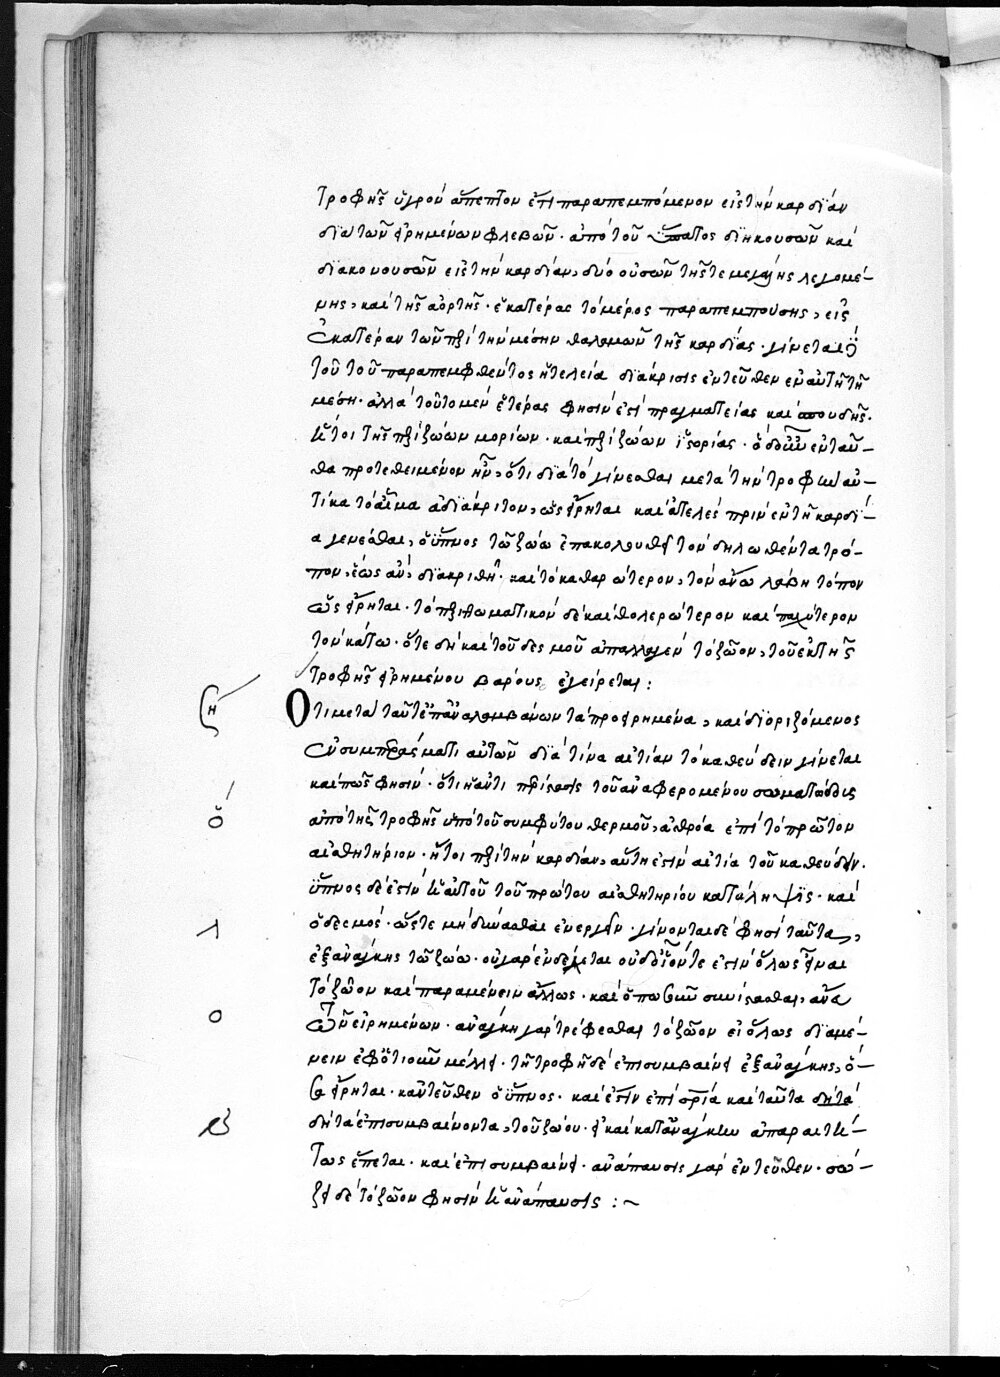 τροφῆς ὑγρὸν ἄπεπτον ἔτι παραπεμπόμενον εἰς τὴν καρδίαν
διὰ τῶν εἰρημένων φλεβῶν· ἀπὸ τοῦ ἥπατος διηκουσῶν καὶ
διακονουσῶν εἰς τὴν καρδίαν, δύο οὐσῶν τῆς τε μεγάλης λεγομέ-
νης, καὶ τῆς ἀορτῆς· ἑκατέρας τὸ μέρος παραπεμπούσης, εἰς
ἑκατέραν τῶν περὶ τὴν μέσην θαλαμῶν τῆς καρδίας· γίνεται
τούτου παραπεμφθέντος ἡ τελεία διάκρισις ἐντεῦθεν ἐν αὐτῇ τῇ
μέσῃ· ἀλλὰ τοῦτο μὲν ἑτέρας φησὶν ἐστὶ πραγματείας καὶ σπουδῆς·
ἤτοι τῆς περὶ ζώων μορίων· καὶ περὶ ζώων ἱστορίας· ὃ δ' οὖν ἐνταῦ-
θα προτεθειμένον ἦν, ὅτι διὰ τὸ γίνεσθαι μετὰ τὴν τροφὴν αὐ-
τίκα τὸ αἷμα ἀδιάκριτον, ὡς εἴρηται καὶ ἀτελὲς πρὶν ἐν τῇ καρδί-
α γενέσθαι, ὁ ὕπνος τῶ ζώω ἐπακολουθεῖ τὸν δηλωθέντα τρό-
πον, ἕως ἂν, διακριθῇ· καὶ τὸ καθαρώτερον, τὸν ἄνω λάβη τόπον
ὡς εἴρηται· τὸ περιττωματικὸν δὲ καὶ θολερώτερον καὶ παχύτερον
τὸν κάτω· ὅτε δὴ καὶ τοῦ δεσμοῦ ἀπαλλαγὲν τὸ ζῶον, τοῦ ἐκ τῆς
τροφῆς εἰρημένου βάρους ἐγείρεται:
Ὅτι μετὰ ταῦτ' ἐπαναλαμβάνων τὰ προειρημένα, καὶ διοριζόμενος
ἐν συμπεράσματι αὐτῶν διὰ τίνα αἰτίαν τὸ καθεύδειν γίνεται
καὶ πῶς φησίν· ὅτι ἡ ἀντιπερίστασις τοῦ ἀναφερομένου σωματώδους
ἀπὸ τῆς τροφῆς ὑπὸ τοῦ συμφύτου θερμοῦ, ἀθρόα ἐπὶ τὸ πρῶτον
αἰσθητήριον· ἤτοι περὶ τὴν καρδίαν, αὕτη ἐστὶν αἰτία τοῦ καθεύδειν·
ὕπνος δὲ ἐστὶν ἡ αὐτοῦ τοῦ πρώτου αἰσθητηρίου κατάληψις· καὶ
ὁ δεσμός· ὥστε μὴ δύνασθαι ἐνεργεῖν· γίνονται δὲ φησὶ ταῦτα,
ἐξ ἀνάγκης τῶ ζώω· οὐ γὰρ ἐνδέχεται οὐδ' οἷόν τε ἐστὶν ὅλως εἶναι
τὸ ζῶον καὶ παραμένειν ἄλλως· καὶ ὁπωσοῦν συνίστασθαι, ἄνευ
τῶν εἰρημένων· ἀνάγκη γὰρ τρέφεσθαι τὸ ζῶον εἰ ὅλως διαμέ-
νειν ἐφ' ὁτιοῦν μέλλει· τῇ τροφῇ δὲ ἐπισυμβαίνει ἐξ ἀνάγκης, ὅ-
σα εἴρηται· κἀντεῦθεν ὁ ὕπνος· καὶ ἔστιν ἐπὶ σωτηρία καὶ ταῦτα δῆτα
δῆτα ἐπισυμβαίνοντα, τοῦ ζώου· εἰ καὶ κατ' ἀνάγκην ἀπαραιτή-
τως ἕπεται· καὶ ἐπισυμβαίνει· ἀνάπαυσις γὰρ ἐντεῦθεν· σώ-
ζει δὲ τὸ ζῶον φησὶν ἡ ἀνάπαυσις :~